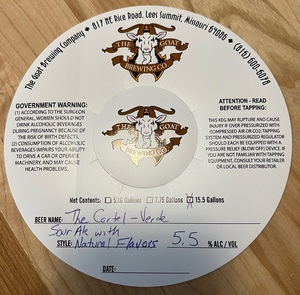 The Goat Brewing Company • 817 NE Rice Road, Lees Summit, Missouri 64086 • (816) 600-6078
THE GOAT
BREWING CO.
GOVERNMENT WARNING:
(1) ACCORDING TO THE SURGEON
GENERAL, WOMEN SHOULD NOT
DRINK ALCOHOLIC BEVERAGES
DURING PREGNANCY BECAUSE OF
THE RISK OF BIRTH DEFECTS.
(2) CONSUMPTION OF ALCOHOLIC
BEVERAGES IMPAIRS YOUR ABILITY
TO DRIVE A CAR OR OPERATE
MACHINERY, AND MAY CAUSE
HEALTH PROBLEMS.
THE GOAT
BREWING CO.
ATTENTION - READ
BEFORE TAPPING:
THIS KEG MAY RUPTURE AND CAUSE
INJURY IF OVER PRESSURIZED WITH
COMPRESSED AIR OR CO2. TAPPING
SYSTEM AND PRESSURIZED REGULATOR
SHOULD EACH BE EQUIPPED WITH A
PRESSURE RELIEF (BLOW OFF) DEVICE. IF
YOU ARE NOT FAMILIAR WITH TAPPING
EQUIPMENT, CONSULT YOUR RETAILER
OR LOCAL BEER DISTRIBUTOR.
Net Contents: 5.16 Gallons 7.75 Gallons 15.5 Gallons
BEER NAME: The Cartel - Verde
Sour Ale with
STYLE: Natural Flavors 5.5 % ALC / VOL
DATE: